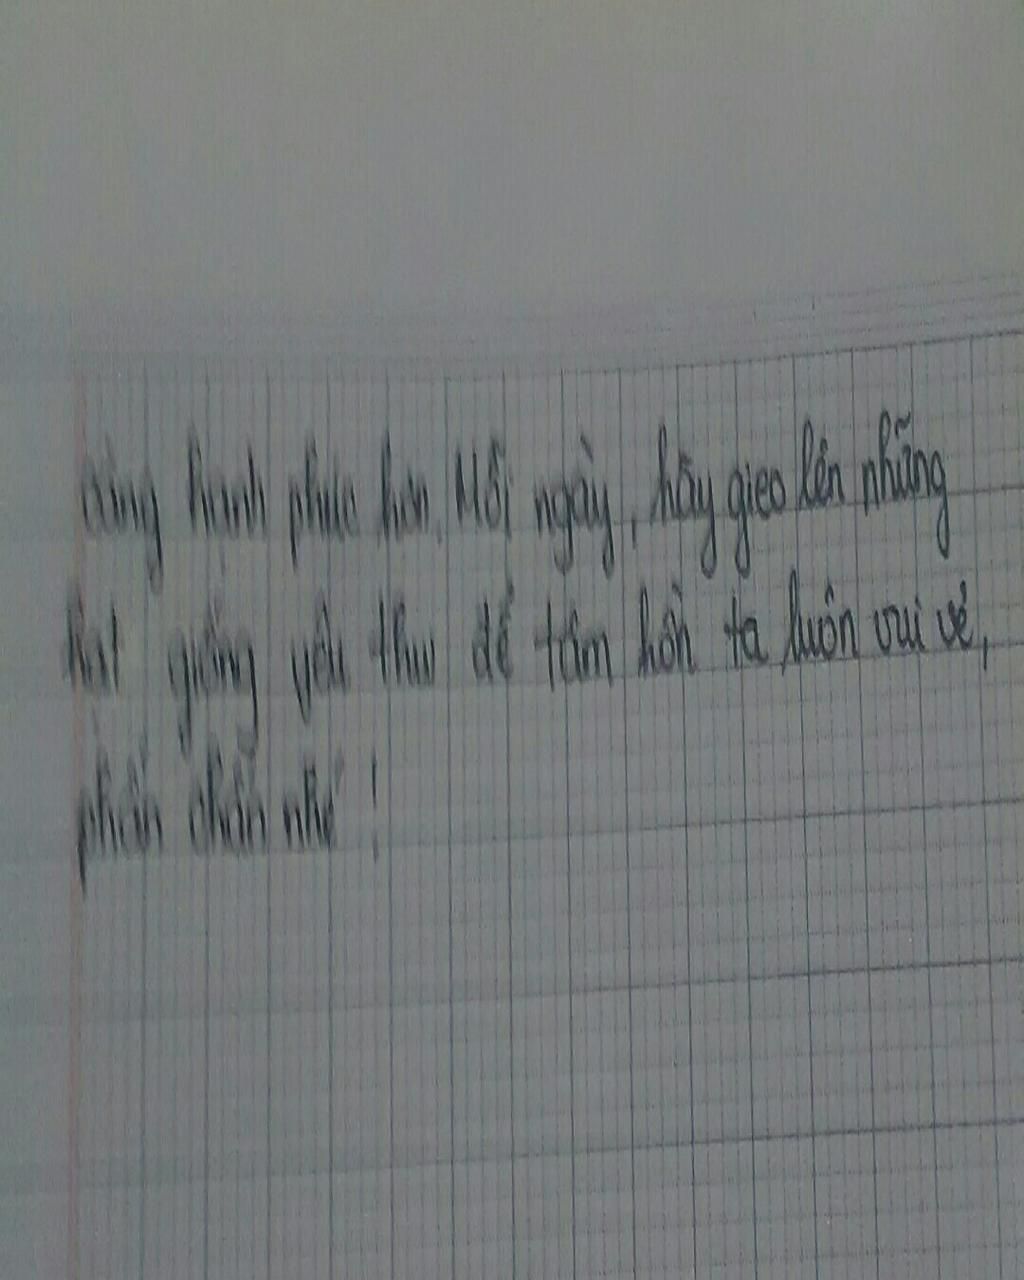 càng hạnh phúc hơn. Mỗi ngày, hãy gieo lên những
hạt giống yêu thư để tâm hồn ta luôn vui vẻ,
phấn chấn nhé !